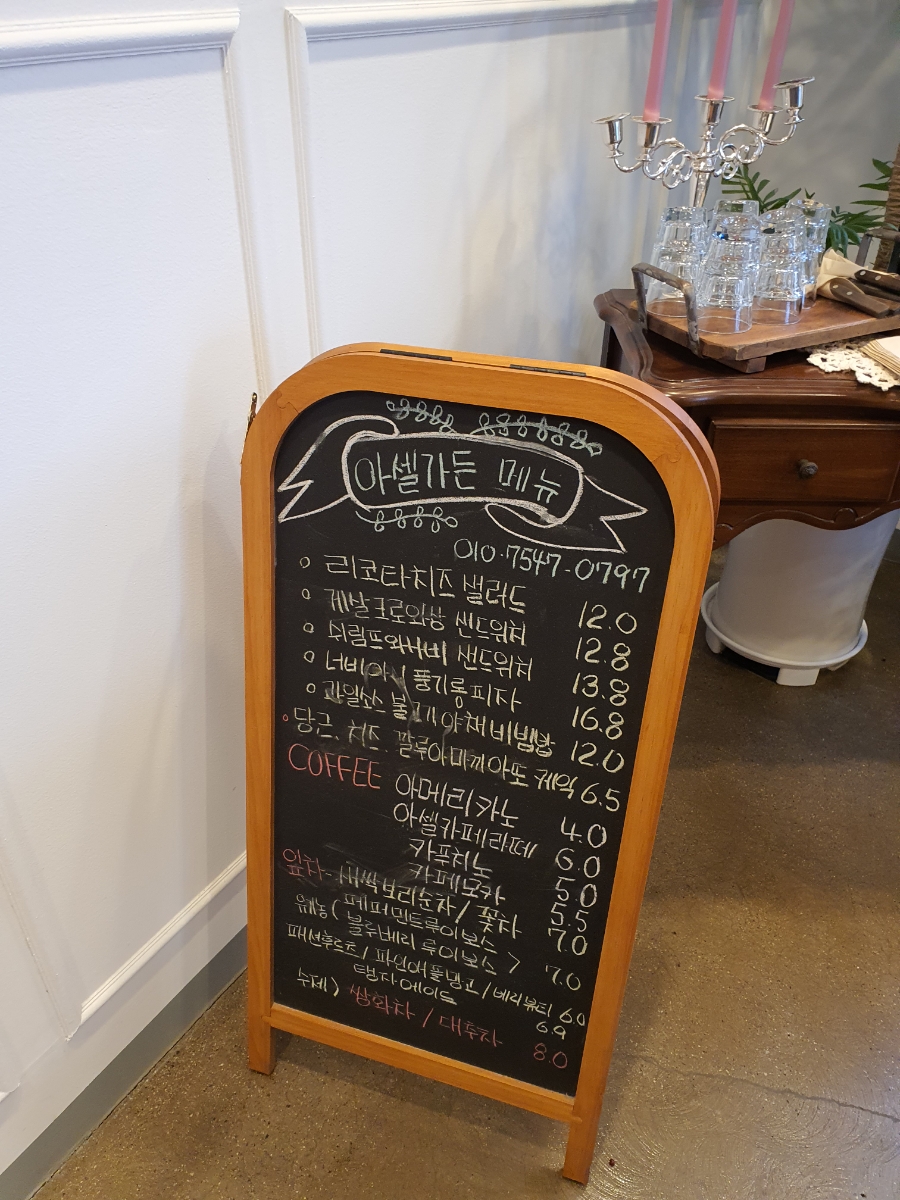 아셀가든 메뉴
010-7547-0797
리코타치즈 샐러드 12.0
게살크로와상 샌드위치 12.8
쉬림프와사비 샌드위치 13.8
너비아니 풍기롱피자 16.8
과일소스 불고기야채비빔밥 12.0
당근, 치즈, 팔루아마끼아또 케익 6.5
COFFEE 아메리카노 4.0
아셀카페라떼 6.0
카푸치노 5.0
카페모카 5.5
잎차- 새싹보리순차 / 꽃차 7.0
유농( 페퍼민트루이보스
블루베리 루이보스 > 7.0
패션후르츠 / 파인애플망고 / 베리뷰티 6.0
탱자에이드 6.9
수제) 쌍화차 / 대추차 8.0